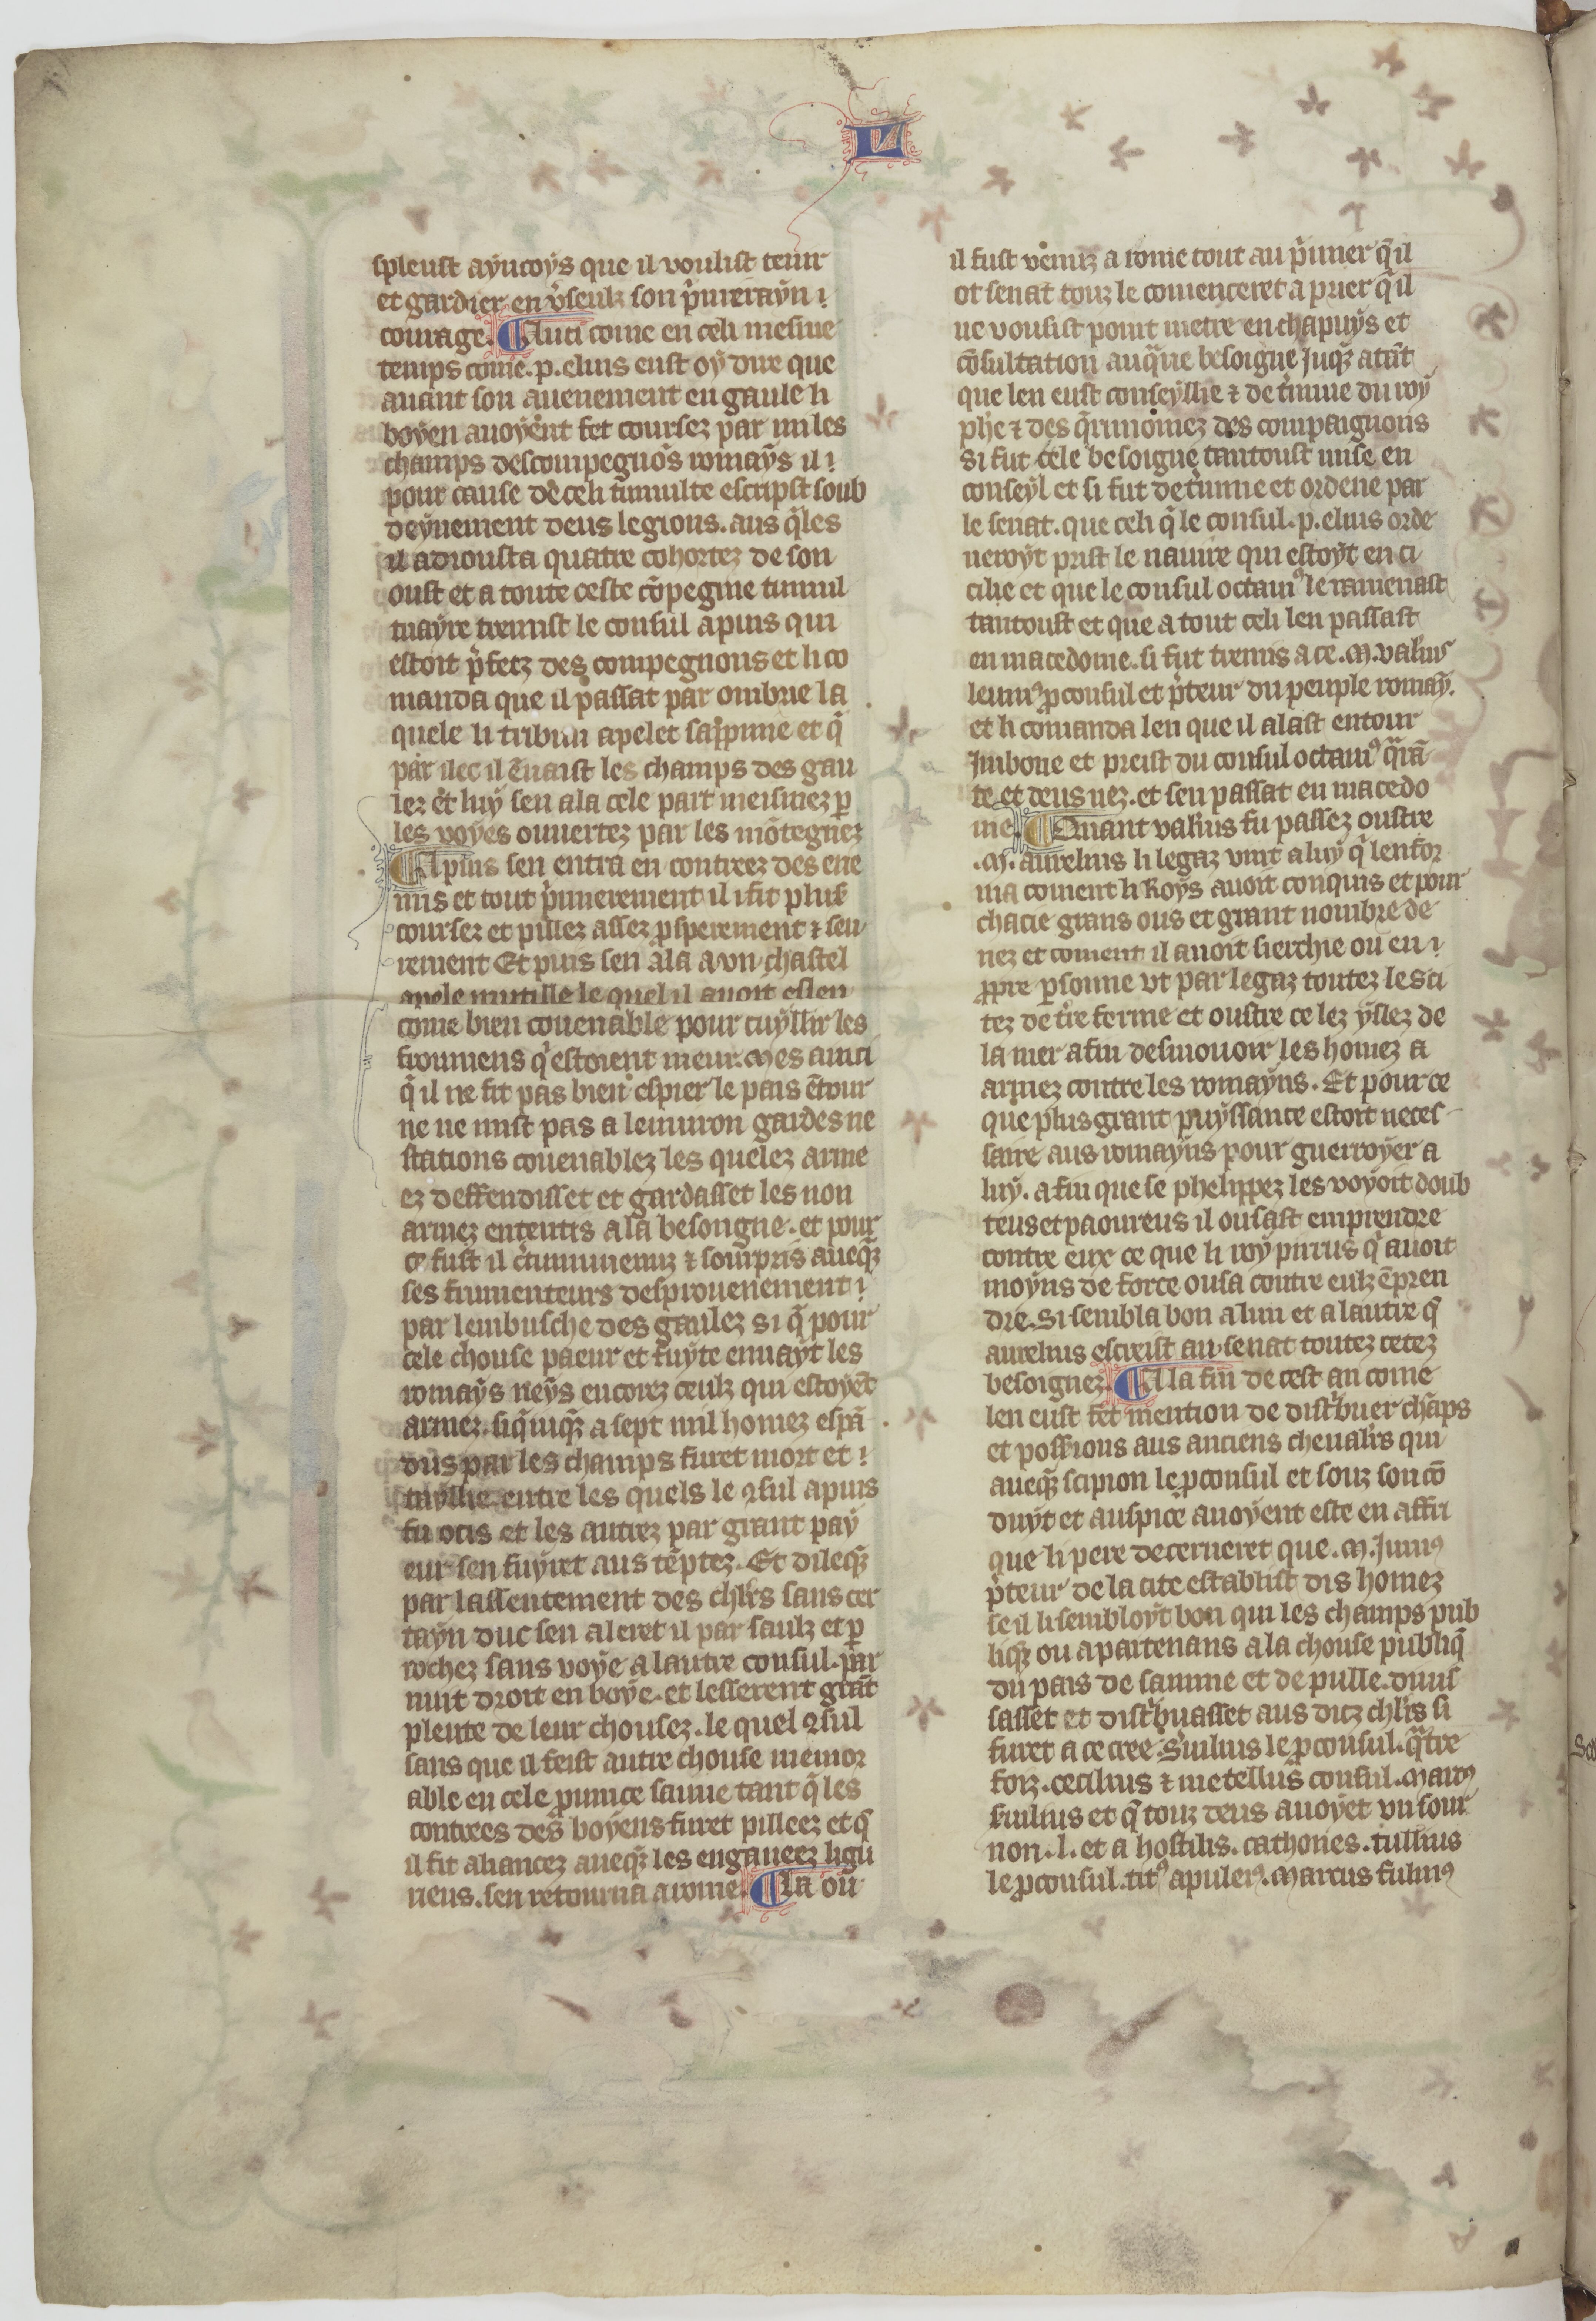 L
spleust ayncoys que il voulist tenir
et gardier en v̾seulz son p̾mierayn
courage. Auci come en celi mesme
temps come .p. elius eust oy dire que
auant son auenement en gaule li
boyen auoyẽnt fet courses par mi les
champs des compegnõs romays il
pour cause de celi tumulte escript soub
deynement deus legions. aus q̃les
il adiousta quatre cohortez de son
oust et a toute ceste cõpegnie tumul
tuayre tremist le consul apius qui
estoit p̾fetz des compegnons et li co
manda que il passat par ombrie la
quele li tribun apelet sappinie et q̃
par ilec il ẽuaist les champs des gau
lez et luy sen ala cele part meismez p̱
les voyes ouuertez par les mõtegnez
Apius sen entra en contrez des ene
mis et tout p̾mierement il i fit plus̾
coursez et pillez assez ꝓsperement ⁊ seu
rement Et puis sen ala a vn chastel
apele mutille le quel il auoit esleu
come bien couenable pour cuyllir les
froumens q̾ estoient meur. Mes ainci
q̃ il ne fit pas bien espier le pais ẽtour
ne ne mist pas a lenuiron gardes ne
stations couenablez les quelez arme
ez deffendisset et gardasset les non
armez ententis a la besongne. et pour
ce fust il c̾tinuuemz ⁊ sourpris aueq̃z
ses frumenteurs desprouenement
par lembusche des gaulez si q̃ pour
cele chouse paeur et fuyte enuayt les
romays neys encorez ceulz qui estoyẽt
armez. siq̃ iuq̃z a sept mil homez espã
dus par les champs furet mort et
taylhe entre les quels le ꝯsul apius
fu ocis et les autrez par grant pay
eur sen fuyret aus tẽptez. Et dileq̃z
par lassentement des chl̾rs sans cer
tayn duc sen aleret il par saulz et p̱
rochez sans voye a lautre consul. par
nuit droit en boye. et lesserent grãt
plente de leur chousez. le quel ꝯsul
sans que il feist autre chouse memor
able en cele prouince saune tant q̃ les
contrees des boyens furet pilleez et q̾
il fit aliancez aueq̃z les engaueez ligu
riens. sen retourna a rome. La ou
il fust venuz a rome tout au p̾mier q̃ il
ot senat touz le comenceret a prier q̃ il
ne vousist point metre en chapuys et
cõsultation auq̃ne besoigne juq̃z atãt
que len eust conseylhe ⁊ det̾mine du roy
phe ⁊ des q̃rimoniez des compaignons
si fut cele besoigne tantoust mise en
conseyl et si fut det̾mine et ordene par
le senat. que celi q̃ le consul .p. elius orde
neroyt prist le nauire qui estoyt en ci
cilie et que le consul octaui9 le ramenast
tantoust et que a tout celi len passast
en macedoine. si fut tremis a ce .M. valius
leuin9 ꝓconsul et p̾teur du peuple romay.
et li comanda len que il alast entour
Imbone et preist du consul octaui9 q̃rã
te et deus nez. et sen passat en macedo
ine. Quant valius fu passez oustre
.M. aurelius li legaz vint a luy q̃ lenfor
ma coment li Roys auoit conquis et pour
chacie grans ous et grant nombre de
nez et coment il auoit sierchie ou en
ꝓpre ꝑsonne vt par legaz toutez les ci
tez de t̾re ferme et oustre ce lez yslez de
la mer afin desmouoir les homez a
armez contre les romayns. Et pour ce
que plus grant puyssante estoit neces
saire aus romayns pour guerroyer a
luy. afin que se phelippez les voyoit doub
teus et paoureus il ousast emprendre
contre eux ce que li roy pirrus q̾ auoit
moyns de force ousa contre eulz ẽpren
dre. Si sembla bon a lun et a lautre q̾
aurelius escreist au senat toutez cetez
besoignez. A la fin de cest an come
len eust fet mention de dist̾buer chãps
et possions aus anciens cheualirs qui
aueq̃z scipion le ꝓconsul et souz son cõ
duyt et auspice auoyent este en affri
que li pere decerneret que .M. Juni9
p̾teur de la cite establist dis homez
se il li sembloyt bon qui les champs pub
liq̃z ou apartenans a la chouse publiq̃
du pais de samnie et de puille. diuis
sasset et dist̾buasset aus ditz chl̾rs si
furet a ce cree Suilius le ꝓconsul. q̃tre
foiz. cecilius ⁊ metellus consul. Marc9
siuilius et q̾ touz deus auoyet vn sour
non .l. et a hostilis. cathones. tullius
le ꝓconsul. tit9 apulei9. Marcus fului9